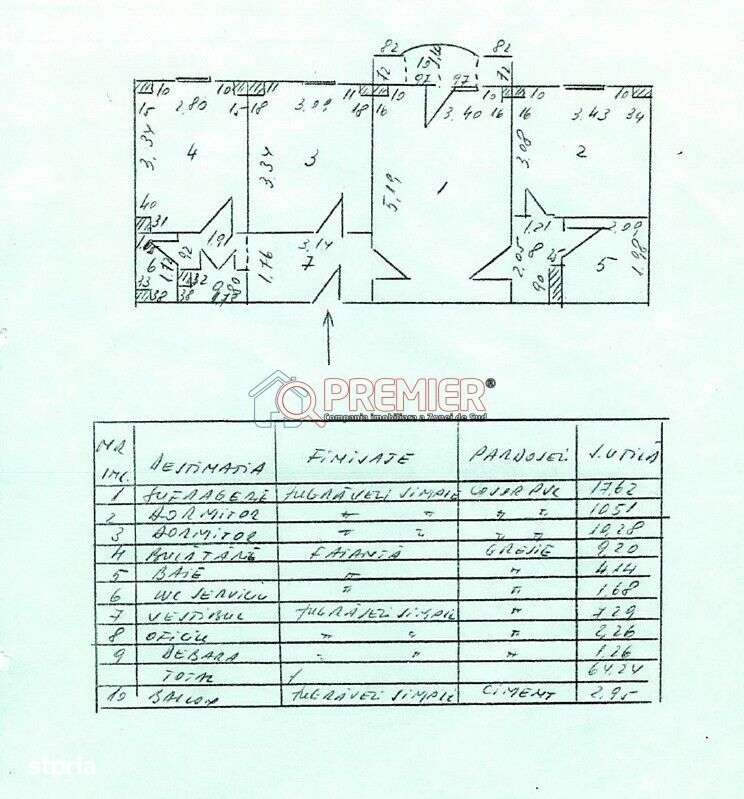 82 10 3,10 82
72 97 97 72
10 10 11 11 10 10 10
15 2,80 15 18 3,09 18 16 3,40 16 16 3,43 34
3,34 3,34 5,19 3,08
4 3 1 2
40
31
1,91 3,14 1,21 2,09
92 1,76 7 2,05 8 25 1,98
6 1,72 32 5
33 38 38 90
PREMIER®
Compania imobiliara a Zonei de Sud
NR INC. DESTINATIA FINISATE PARDOSELI S.UTILĂ
1 SUFRAGERE ZUGRĂVELI SIMPLE COVOR PVC 17,62
2 DORMITOR " " " " 10,51
3 DORMITOR " " " " 10,28
4 BUCĂTĂRE FAIANȚĂ GRESIE 9,20
5 BAIE " " 4,14
6 WC SERVICIU " 1,68
7 VESTIBUL ZUGRĂVELI SIMPLE " 7,29
8 OFICIU " " " 2,26
9 DEBARA " " " 1,26
TOTAL 64,24
10 BALCON ZUGRĂVELI SIMPLE CIMENT 2,95
storia